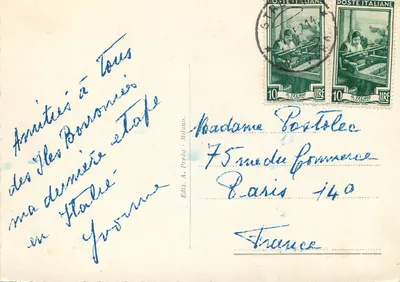 Amitiés à tous
des Iles Borromées
ma dernière etape
en Italie
Yvonne
Ediz. A. Preda - Milano.
POSTE ITALIANE
10 LIRE
POSTE ITALIANE
10 LIRE
Madame Postolec
75 rue du Commerce
Paris 14o
France